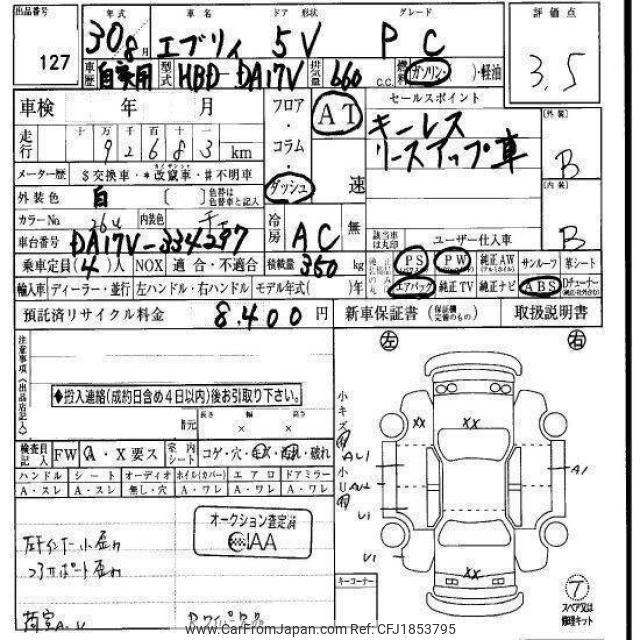 出品番号 年式 車名 ドア 形状 グレード 評価点
127 30 8月 エブリィ 5V PC 3.5
車歴 自家用 型式 HBD-DA17V 排気量 660 c.c. 燃料 ガソリン・( )・軽油
車検 年 月 フロア・コラム・ダッシュ AT 速 セールスポイント
キーレス
リースアップ車
[外装] B
[内装] B
走行 十 万 千 百 十 一
92683 km
メーター歴 $交換車・*改竄車・#不明車
外装色 白 [ ] 色替は色替車と記入
カラーNo. 26U 内装色 冷房 AC 無 該当車は丸印 ユーザー仕入車
車台番号 DA17V-334297
乗車定員(4)人 NOX 適合・不適合 積載量 350 kg PS PW 純正AW(アルミホイル) サンルーフ 革シート
輸入車 ディーラー・並行 左ハンドル・右ハンドル モデル年式( )年 エアバック 純正TV 純正ナビ ABS Dチューナー
預託済リサイクル料金 8,400 円 新車保証書(保証機完備のもの) 取扱説明書
注意事項(出品店記入) 左 右
◆搬入連絡(成約日含め4日以内)後お引取り下さい。
長さ 幅 高さ
諸元 × ×
小キズ 小U
検査員記入 FW A・X要ス 室内シート コゲ・穴・キズ・汚れ・破れ
ハンドル シート オーディオ ホイル(カバー) エアロ ドアミラー
A・スレ A・スレ 無し・穴 A・ワレ A・ワレ A・ワレ
XX XX A1 A1 U1 U1 XX
オークション査定済
IAA
左インナー小歪み
コアサポート歪み
荷室A.U
キーコーナー
T スペア又は修理キット
www.CarFromJapan.com Ref: CFJ1853795